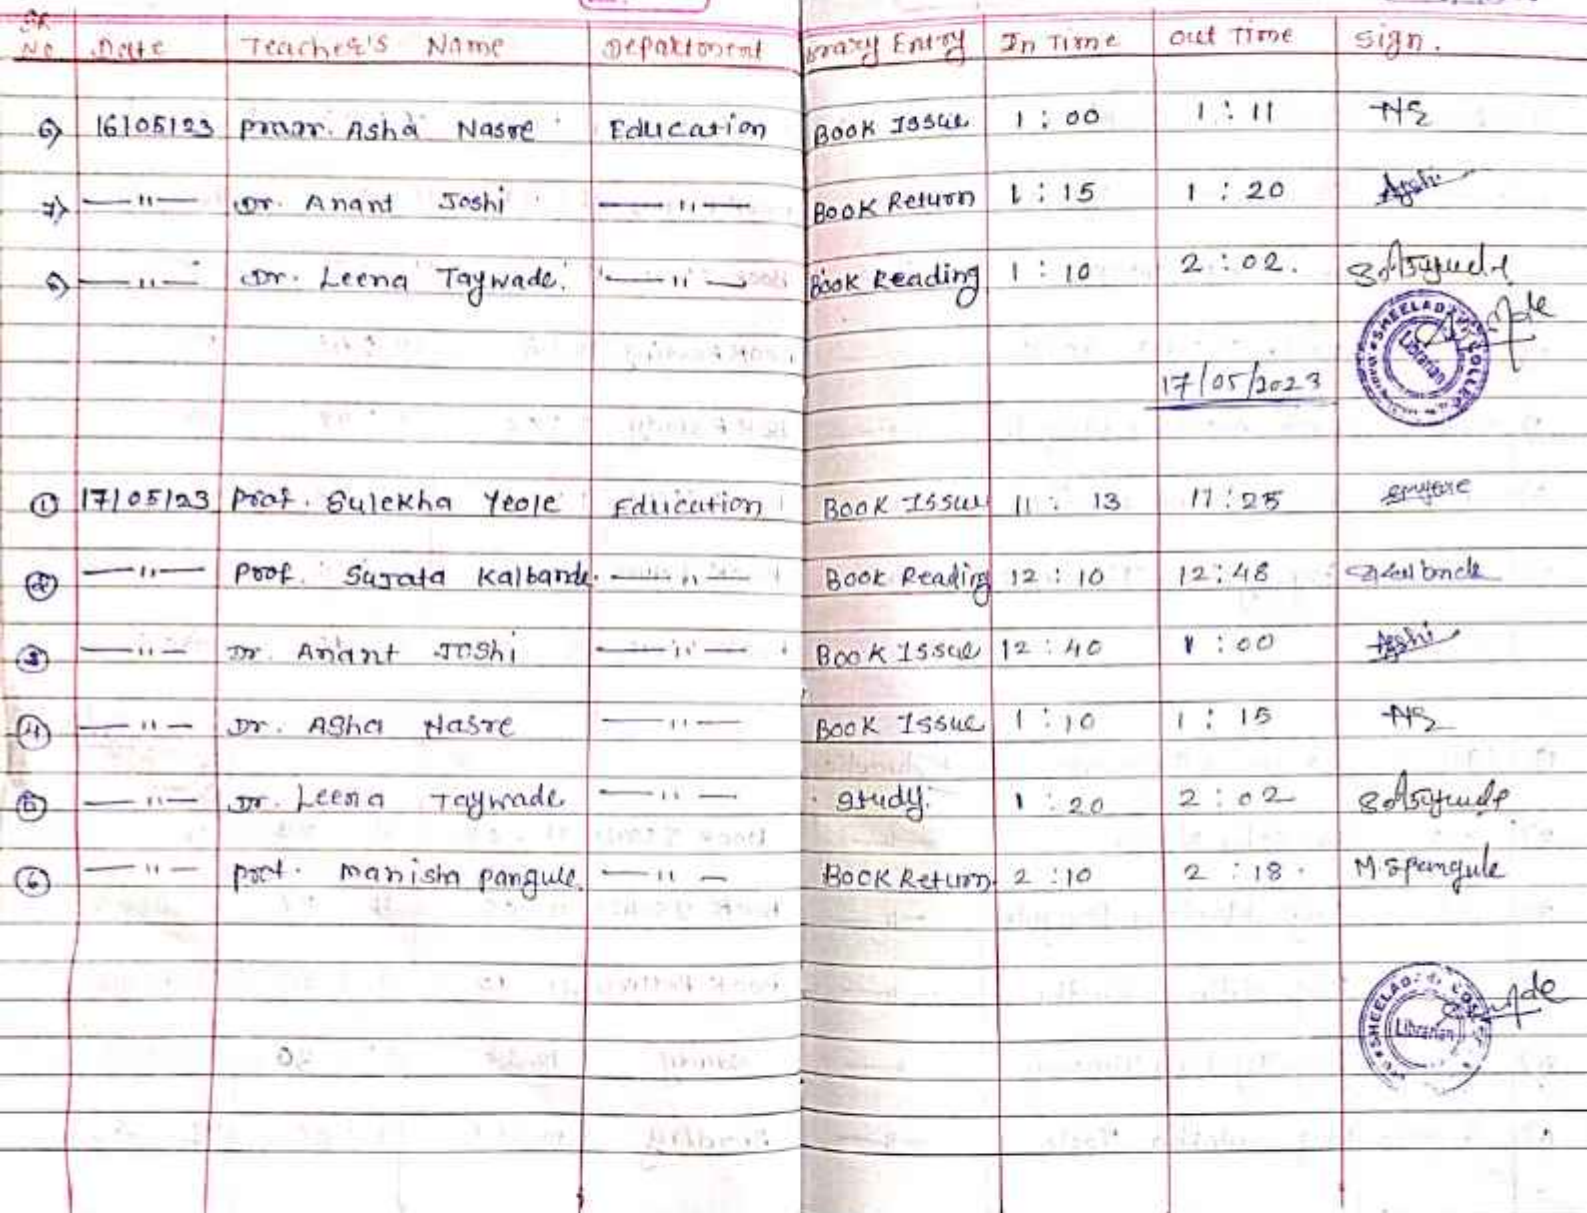 SR No Date Teacher's Name Department Library Entry In Time Out Time Sign.
6) 16/05/23 Asha Nasre Education Book Issue 1:00 1:11 NS
7) —"— Dr. Anant Joshi —"— Book Return 1:15 1:20 Joshi
—"— Dr. Leena Taywade. —"— Book Reading 1:10 2:02.
SHEELADEVI COLLEGE Librarian
17/05/2023
① 17/05/23 Prof. Sulekha Yeole Education Book Issue 11:13 11:25
② —"— Prof. Sujata Kalbande. —"— Book Reading 12:10 12:48 Kalbande
③ —"— Dr. Anant Joshi —"— Book Issue 12:40 1:00 Joshi
④ —"— Dr. Asha Nasre —"— Book Issue 1:10 1:15 NS
⑤ —"— Dr. Leena Taywade —"— Study. 1:20 2:02
⑥ —"— Prof. Manisha Pangule. —"— Book Return. 2:10 2:18. M.S Pangule
SHEELADEVI Librarian